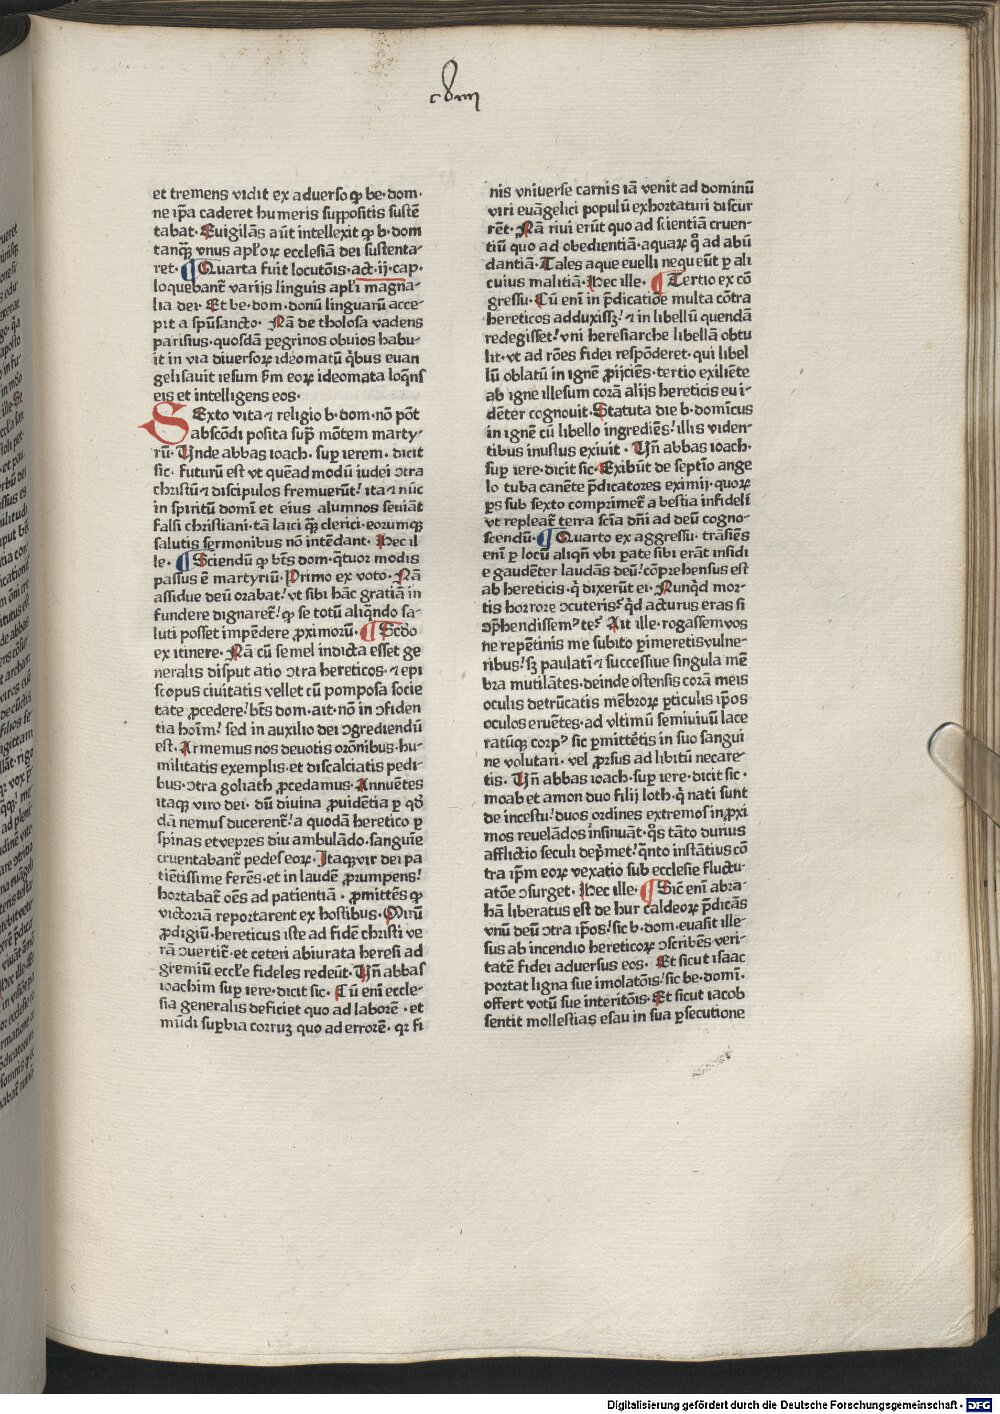 et tremens vidit ex aduerso ꝙ be·dom·
ne ip̄a caderet humeris suppositis sustē
tabat· Euigilās aūt intellexit ꝙ b·dom
tanqȝ vnus apl'oꝝ ecclesiā dei sustenta-
ret· ¶ Quarta fuit locutōis·act·ij·cap·
loquebant̄ varijs linguis apl'i magna-
lia dei· Et be·dom·donū linguarū acce-
pit a spūsancto· Nā de tholosa vadens
parisius·quosdā peregrinos obuios habu-
it in via diuersoꝝ ideomatū qͥbus euan
gelisauit iesum ẜm eoꝝ ideomata loqn̄s
eis et intelligens eos·
SExto vita ⁊ religio b·dom·nō pōt
abscōdi posita suꝑ mōtem marty-
rū· Unde abbas ioach·suꝑ ierem·dicit
sic·futurū est vt quēadmodū iudei ↄtra
christū ⁊ discipulos fremuerūt! ita ⁊ nūc
in spiritū domī et eius alumnos seuiāt
falsi christiani·tā laici qȝ clerici·eorumqȝ
salutis sermonibus nō intēdant· Hec il
le· ¶ Sciendū ꝙ bt̄s dom·qͣtuor modis
passus ē martyriū· Primo ex voto· Nā
assidue deū orabat! vt sibi hāc gratiā in
fundere dignaret̄! ꝙ se totū aliqn̄do sa-
luti posset impēdere ꝓximorū· ¶ Scd̄o
ex itinere· Nā cū semel indicta esset ge
neralis disputatio ↄtra hereticos·⁊ epi
scopus ciuitatis vellet cū pomposa socie
tate ꝓcedere! bt̄s dom·ait·nō in ↄfiden
tia hoīm! sed in auxilio dei ↄgrediendū
est· Armemus nos deuotis orōnibus·hu-
militatis exemplis·et discalciatis pedi-
bus·ↄtra goliath ꝓcedamus· Annuētes
itaqȝ viro dei·dū diuina ꝓuidētia ꝑ qd̄
dā nemus ducerent̄! a quodā heretico ꝑ
spinas et vepres diu ambulādo·sanguīe
cruentabant̄ pedes eoꝝ· Itaqȝ vir dei pa
tiētissime ferēs·et in laudē ꝓrumpens!
hortabat̄ oēs ad patientiā·ꝓmittēs ꝙ
victoriā reportarent ex hostibus· Mirū
ꝓdigiū·hereticus iste ad fidē christi ve
rā ↄuertit̄·et ceteri abiurata heresi ad
gremiū eccl'e fideles redeūt· Un̄ abbas
ioachim suꝑ iere·dicit sic· Cū enī eccle-
sia generalis deficiet quo ad laborē·et
mūdi suꝑbia corruȝ quo ad errorē·qꝛ fi
nis vniuerse carnis iā venit ad dominū
viri euāgelici populū exhortaturi discur
rēt· Nā riui erūt quo ad scientiā cruen-
tiū quo ad obedientiā·aquaꝝ qͣ ad abū
dantiā· Tales aque euelli nequeūt ꝑ ali
cuius malitiā· Hec ille· ¶ Tertio ex cō
gressu· Cū enī in p̄dicatiōe multa cōtra
hereticos adduxissȝ! ⁊ in libellū quendā
redegisset! vni heresiarche libellā obtu
lit·vt ad rōes fidei respōderet·qui libel
lū oblatū in ignē ꝓijciēs·tertio exiliēte
ab igne illesum corā alijs hereticis eui-
dēter cognouit· Statuta die b·domīcus
in ignē cū libello ingrediēs! illis viden-
tibus inustus exiuit· Un̄ abbas ioach·
suꝑ iere·dicit sic· Exibūt de septīo ange
lo tuba canēte p̄dicatores eximij·quoꝝ
ꝑs sub sexto comprimet̄ a bestia infideli
vt repleat̄ terra scīa dn̄i ad deū cogno-
scendū· ¶ Quarto ex aggressu·trāsiēs
enī ꝑ locū aliqn̄ vbi ꝑate sibi erāt insidi
e gaudēter laudās deū! cōprehensus est
ab hereticis·qͥ dixerūt ei· Nunqͥd mor-
tis horrore ↄcuteris! qͥd acturus eras si
ↄp̄hendissemꝰ te! Ait ille·rogassem vos
ne repētinis me subito ꝑimeretis vulne-
ribus! sȝ paulatī ⁊ successiue singula mē
bra mutilātes·deinde ostensis corā meis
oculis detrūcatis mēbroꝝ ꝑticulis ip̄os
oculos eruētes·ad vltimū semiuiuū lace
ratūqȝ corpꝰ sic ꝑmittētis in suo sangui
ne volutari·vel ꝓrsus ad libitū necare-
tis· Un̄ abbas ioach·suꝑ iere·dicit sic·
moab et amon duo filij loth·qͥ nati sunt
de incestu! duos ordines extremos in ꝓxi
mos reuelādos insinuāt·qͦs tāto durius
afflictio seculi dep̄met! qͣnto instātius cō
tra ip̄m eoꝝ vexatio sub ecclesie fluctu-
atōe ↄsurget· Hec ille· ¶ Sic̄ enī abra-
hā liberatus est de hur caldeoꝝ p̄dicās
vnū deū ↄtra ip̄os! sic b·dom·euasit ille-
sus ab incendio hereticoꝝ ↄscribēs veri-
tatē fidei aduersus eos· Et sicut isaac
portat ligna sue imolatōis! sic be·domī·
offert votū sue interitōis· Et sicut iacob
sentit molestias esau in sua ꝑsecutione
Digitalisierung gefördert durch die Deutsche Forschungsgemeinschaft - DFG